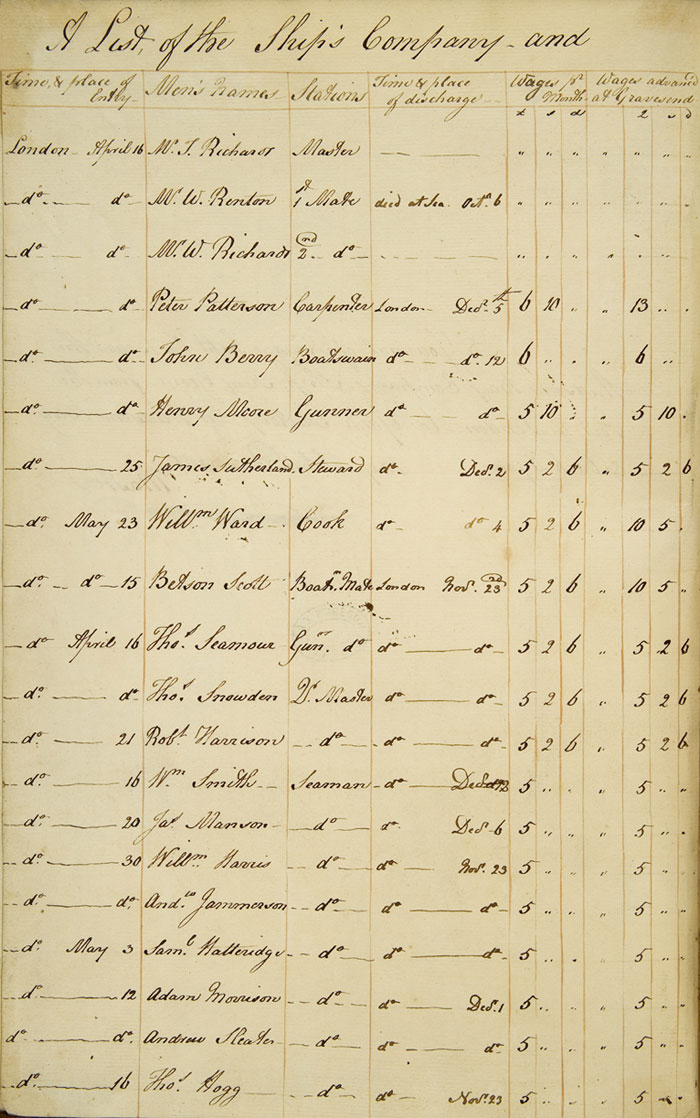 A List, of the Ship's Company - and
Time, & place of Entry - Men's Names Stations Time & place of discharge - Wages pr Month - Wages advanced at Gravesend
£ s d £ s d
London - April 16 Mr. T. Richards Master — — — " " " " " " "
do. do Mr. W. Renton 1st Mate died at Sea. Octr. 6 " " " " " " "
do do. Mr. W. Richards 2nd do " " " " " " "
do do Peter Patterson Carpenter London Decr. 5th 6 10 " " 13 " "
do. do John Berry Boatswain do do. 12 6 " " " 6 " "
do. do Henry Moore Gunner do do 5 10 " " 5 10 "
do 25 James Sutherland Steward do. Decr. 2 5 2 6 " 5 2 6
do. May 23 Willm. Ward Cook do do 4 5 2 6 " 10 5 "
do. do 15 Betson Scott Boatn. Mate London Novr. 23rd 5 2 6 " 10 5 "
do April 16 Thos. Seamour Gunr. do do do 5 2 6 " 5 2 6
do. do Thos. Snowden Qr. Master do do 5 2 6 " 5 2 6
do. 21 Robt. Harrison do do do 5 2 6 " 5 2 6
do. 16 Wm. Smith Seaman do 5 " " " 5 " "
do. 20 Jas. Manson do do. Decr. 6 5 " " " 5 " "
do. 30 Willm. Harris do do Novr. 23 5 " " " 5 " "
do. do. Andw. Jammerson do do do 5 " " " 5 " "
do. May 3 Saml. Hatteridge do do do 5 " " " 5 " "
do. 12 Adam Morrison do do Decr. 1 5 " " " 5 " "
do. do. Andrew Sleater do do do 5 " " " 5 " "
do 16 Thos. Hogg do do Novr. 23 5 " " " 5 " "